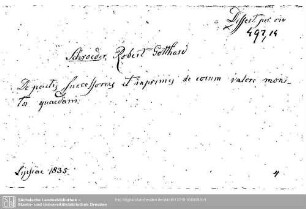 Dissert. jur. civ.
497,14
Schroeder, Robert Gotthard
De pactis successoriis et inprimis de eorum valore moni-
ta quaedam.
Lipsiae 1835.
4
Sächsische Landesbibliothek -
Staats- und Universitätsbibliothek Dresden